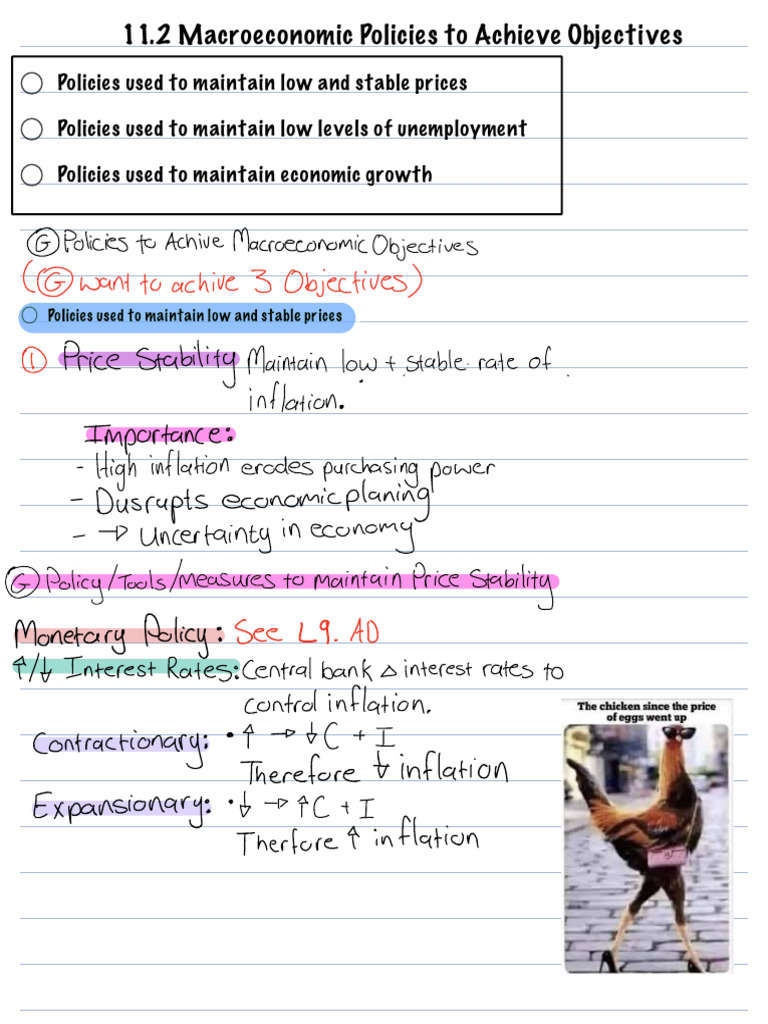 11.2 Macroeconomic Policies to Achieve Objectives
Policies used to maintain low and stable prices
Policies used to maintain low levels of unemployment
Policies used to maintain economic growth
Ⓖ Policies to Achive Macroeconomic Objectives
(Ⓖ want to achive 3 Objectives)
Policies used to maintain low and stable prices
① Price Stability Maintain low + stable rate of
inflation.
Importance:
- High inflation erodes purchasing power
- Dusrupts economic planing
- → Uncertainty in economy
Ⓖ Policy/Tools/measures to maintain Price Stability
Monetary Policy: See L9. AD
↑/↓ Interest Rates: Central bank △ interest rates to
control inflation.
Contractionary: • ↑ → ↓ C + I
Therefore ↓ inflation
Expansionary: • ↓ → ↑ C + I
Therfore ↑ inflation
The chicken since the price
of eggs went up